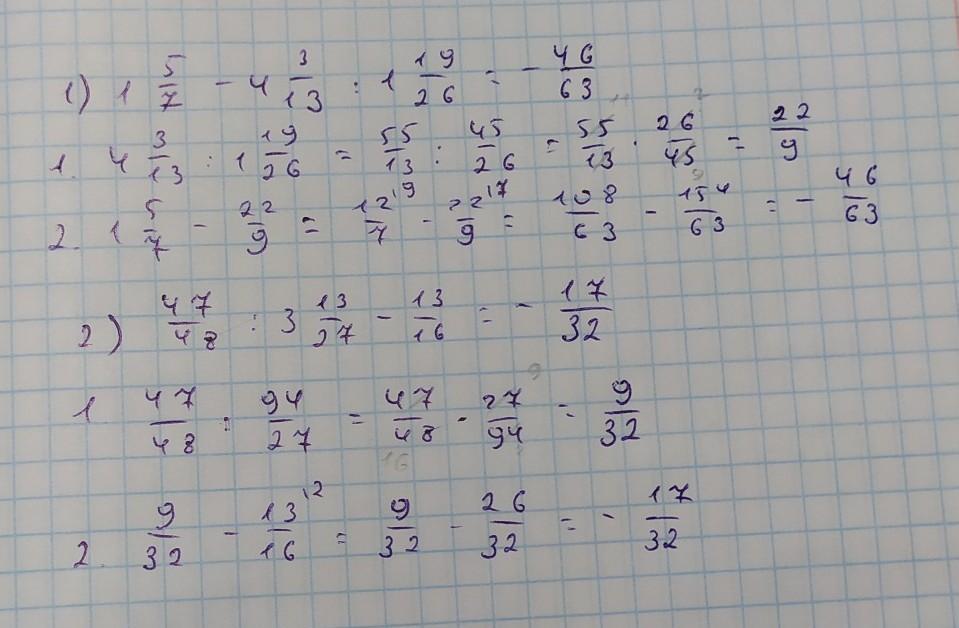 1) 1 5/7 - 4 3/13 : 1 19/26 = - 46/63
1. 4 3/13 : 1 19/26 = 55/13 : 45/26 = 55/13 · 26/45 = 22/9
2. 1 5/7 - 22/9 = 12/7 ^9 - 22/9 ^7 = 108/63 - 154/63 = - 46/63
2) 47/48 : 3 13/27 - 13/16 = - 17/32
1 47/48 : 94/27 = 47/48 · 27/94 = 9/32
2. 9/32 - 13/16 ^2 = 9/32 - 26/32 = - 17/32